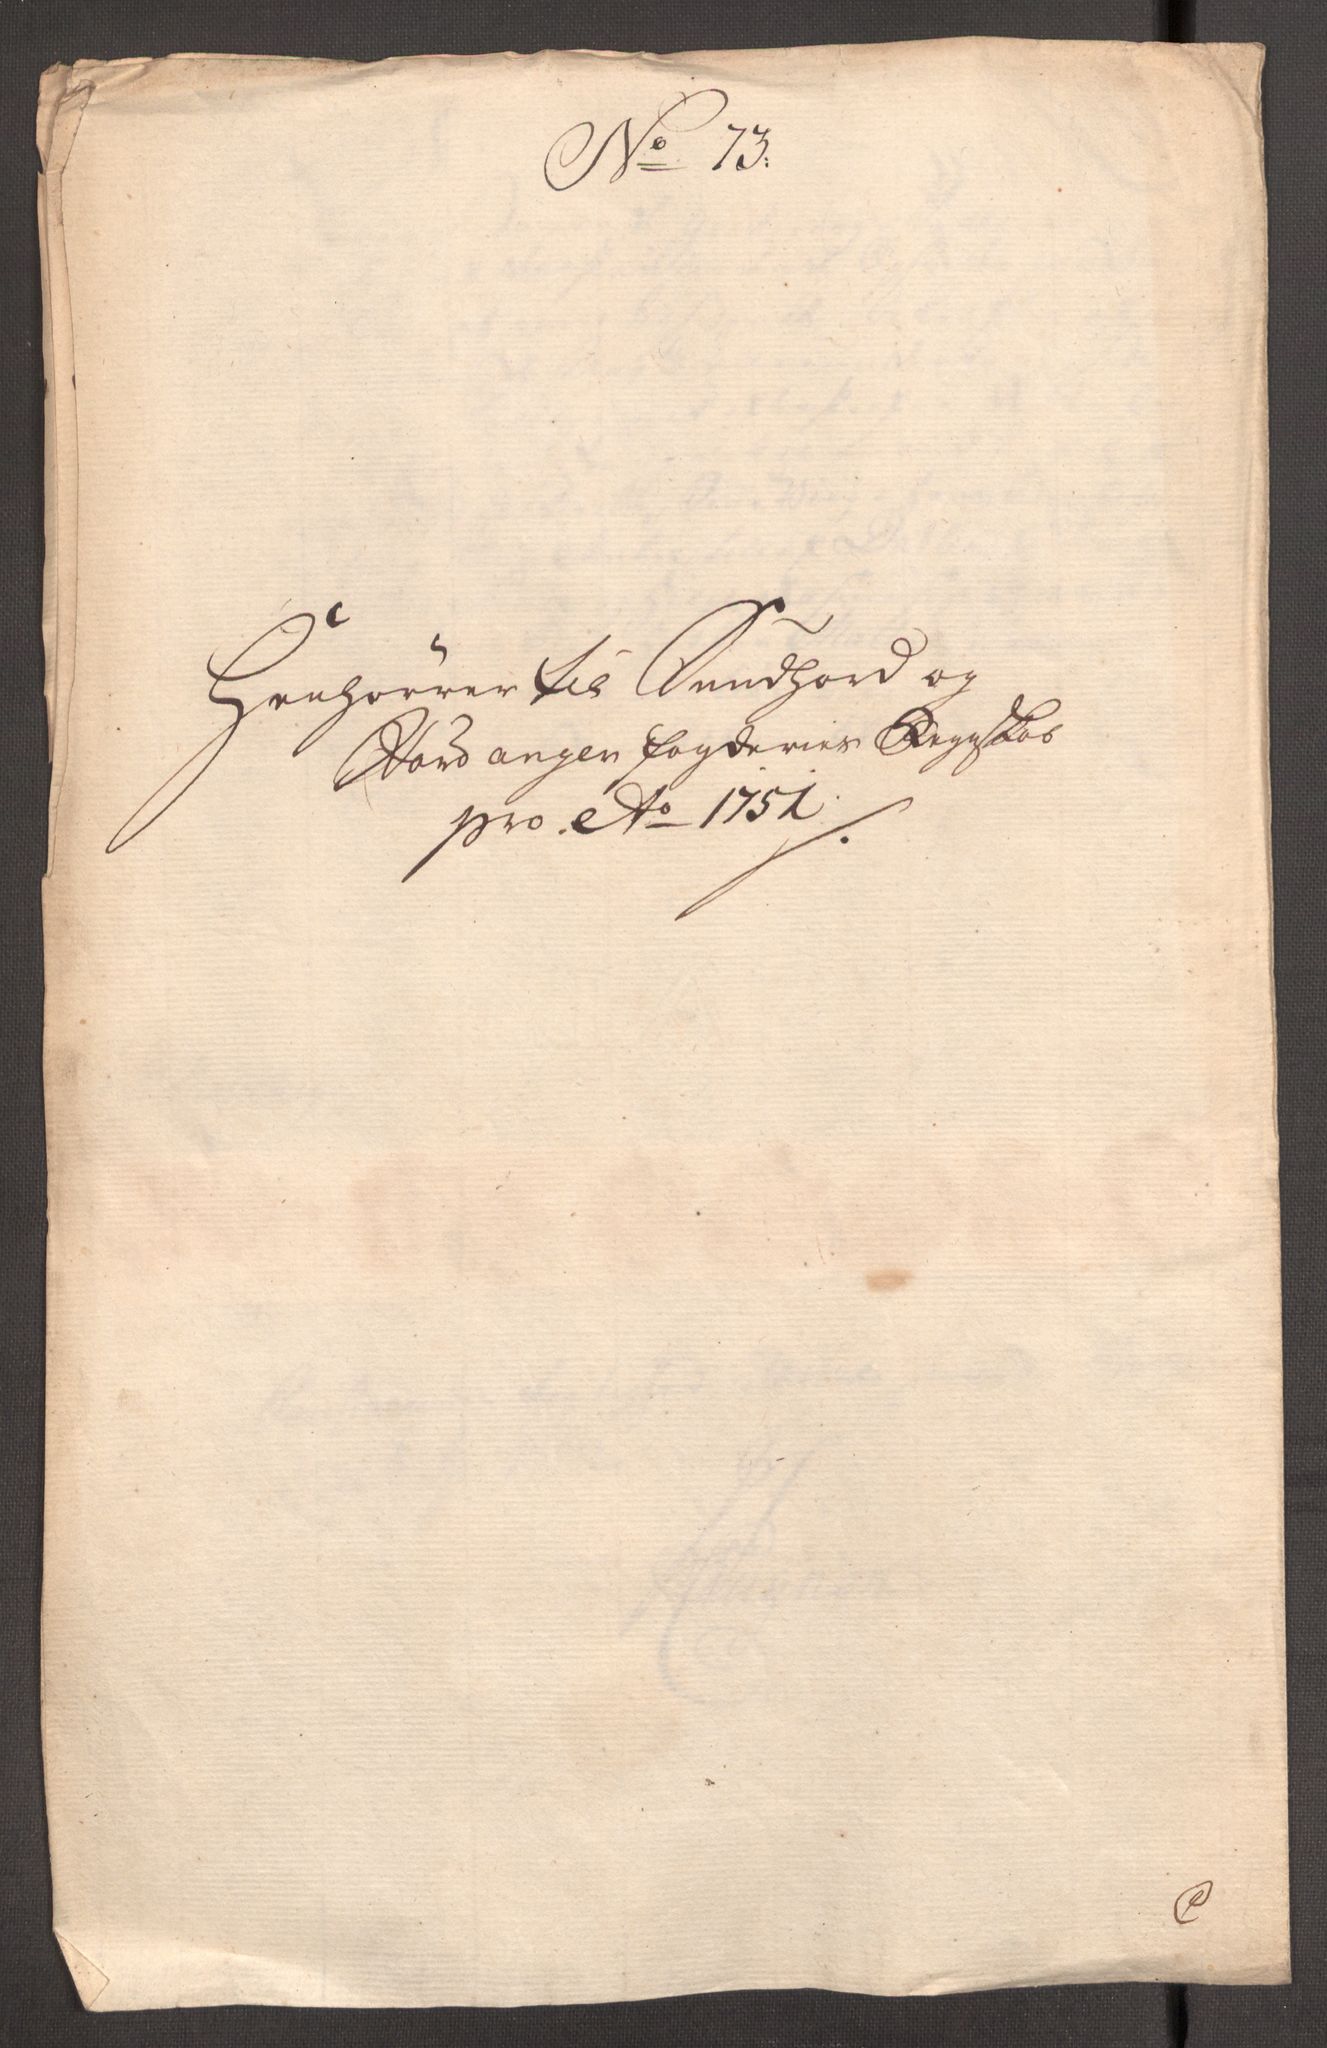 No 73.
Henhörer til Sundhord og
Hardanger fogderies Regnskab
pro Ao 1751.